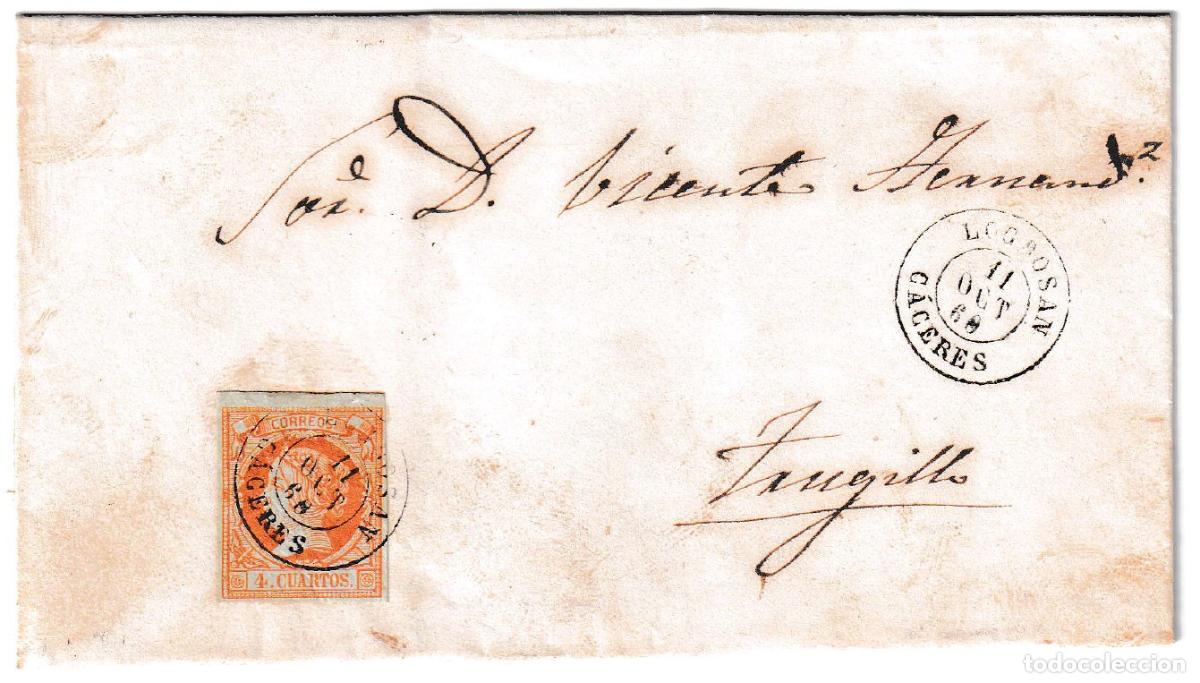 Sor. D. Vicente Hernand.z
LOGROSAN
11
OCT
60
CÁCERES
Trugillo
CORREOS
11
OCT
60
CÁCERES
4. CUARTOS.
todocoleccion